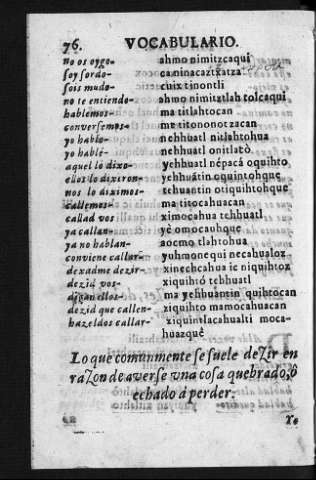 76. VOCABULARIO.
no os oygo- ahmo nimitzcaqui
soy sordo- ca ninacaztzatza
sois mudo- cuix tinontli
no te entiendo- ahmo nimitztlah tolcaqui
hablemos- ma titlahtocan
conversemos- ma titononotzacan
yo hablo- nehhuatl nitlahtohua
yo hablè- nehhuatl onitlatò
aquel lo dixo- yehhuatl népacá oquihto
ellos lo dixeron- yehhuātin oquintohque
nos lo diximos- tehuantin otiquihtohque
callemos- ma titocahuacan
callad vos- ximocahua tehhuatl
ya callan- yè omocauhque
ya no hablan- aocmo tlahtohua
conviene callar- yuhmonequi necahualoz
dexadme dezir- xinechcahua ic niquihtoz
dezid vos- xiquihtó tehhuatl
digan ellos- ma yehhuantin quihtocan
dezid que callen- xiquihto mamocahuacan
hazeldos callar- xiquintlacahualti moca-
huazquê
Lo que comunmente se suele deZir en
raZon de averse vna cosa quebrado, ô
echado á perder.
Yo